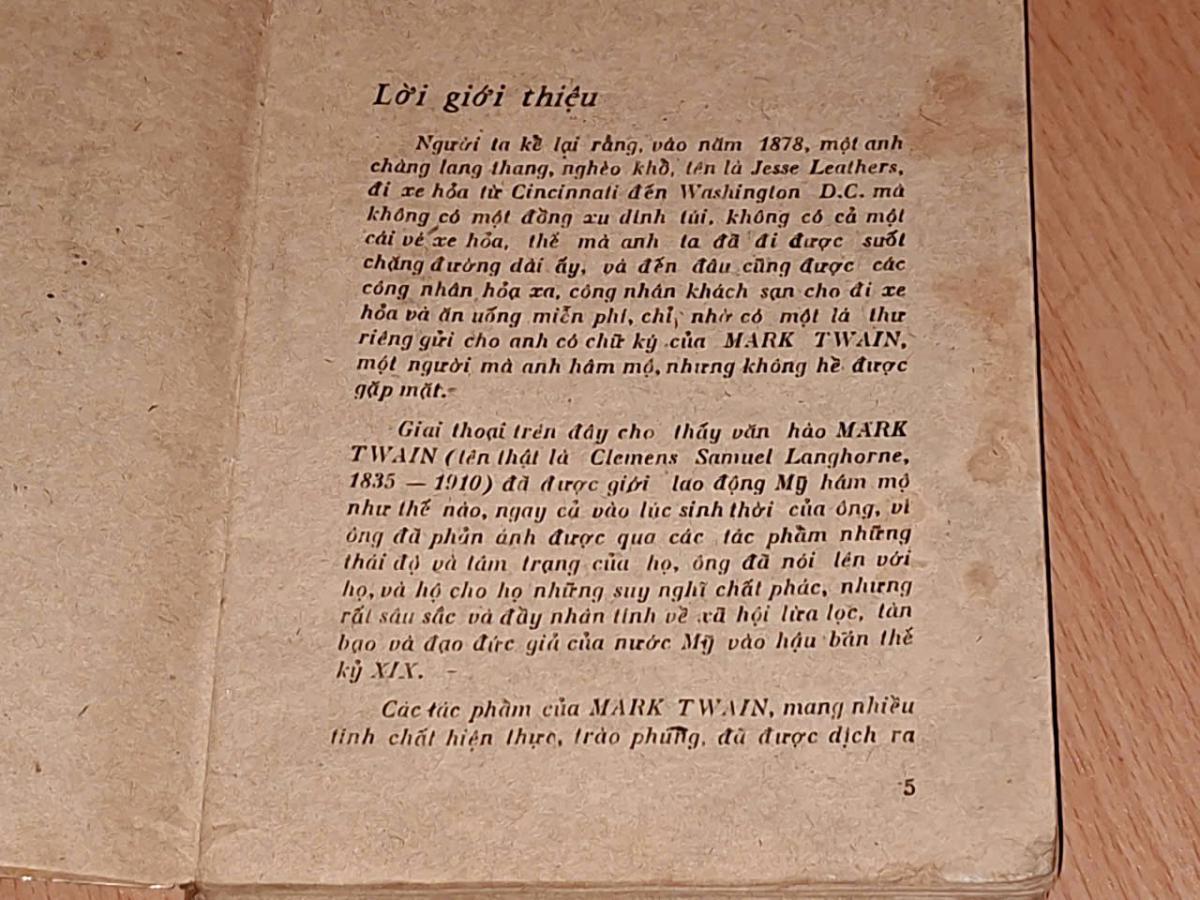 Lời giới thiệu
Người ta kể lại rằng, vào năm 1878, một anh
chàng lang thang, nghèo khổ, tên là Jesse Leathers,
đi xe hỏa từ Cincinnati đến Washington D.C. mà
không có một đồng xu dính túi, không có cả một
cái vé xe hỏa, thế mà anh ta đã đi được suốt
chặng đường dài ấy, và đến đâu cũng được các
công nhân hỏa xa, công nhân khách sạn cho đi xe
hỏa và ăn uống miễn phí, chỉ, nhờ có một lá thư
riêng gửi cho anh có chữ ký của MARK TWAIN,
một người mà anh hâm mộ, nhưng không hề được
gặp mặt.
Giai thoại trên đây cho thấy văn hào MARK
TWAIN (tên thật là Clemens Samuel Langhorne,
1835 — 1910) đã được giới lao động Mỹ hâm mộ
như thế nào, ngay cả vào lúc sinh thời của ông, vì
ông đã phản ánh được qua các tác phẩm những
thái độ và tâm trạng của họ, ông đã nói lên với
họ, và hộ cho họ những suy nghĩ chất phác, nhưng
rất sâu sắc và đầy nhân tính về xã hội lừa lọc, tàn
bạo và đạo đức giả của nước Mỹ vào hậu bán thế
kỷ XIX.
Các tác phẩm của MARK TWAIN, mang nhiều
tính chất hiện thực, trào phúng, đã được dịch ra
5